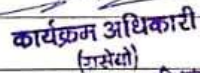 कार्यक्रम अधिकारी
(रासेयो)